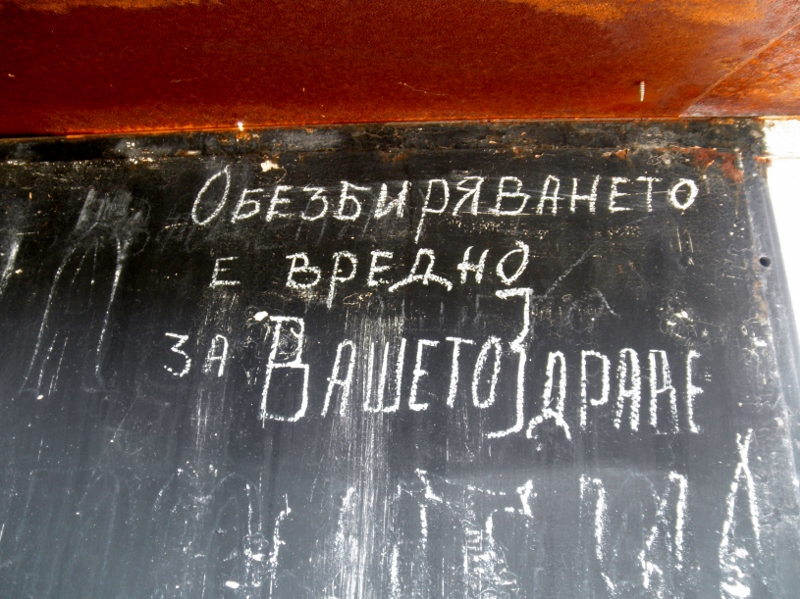 Обезбиряването
е вредно
за Вашето Здраве